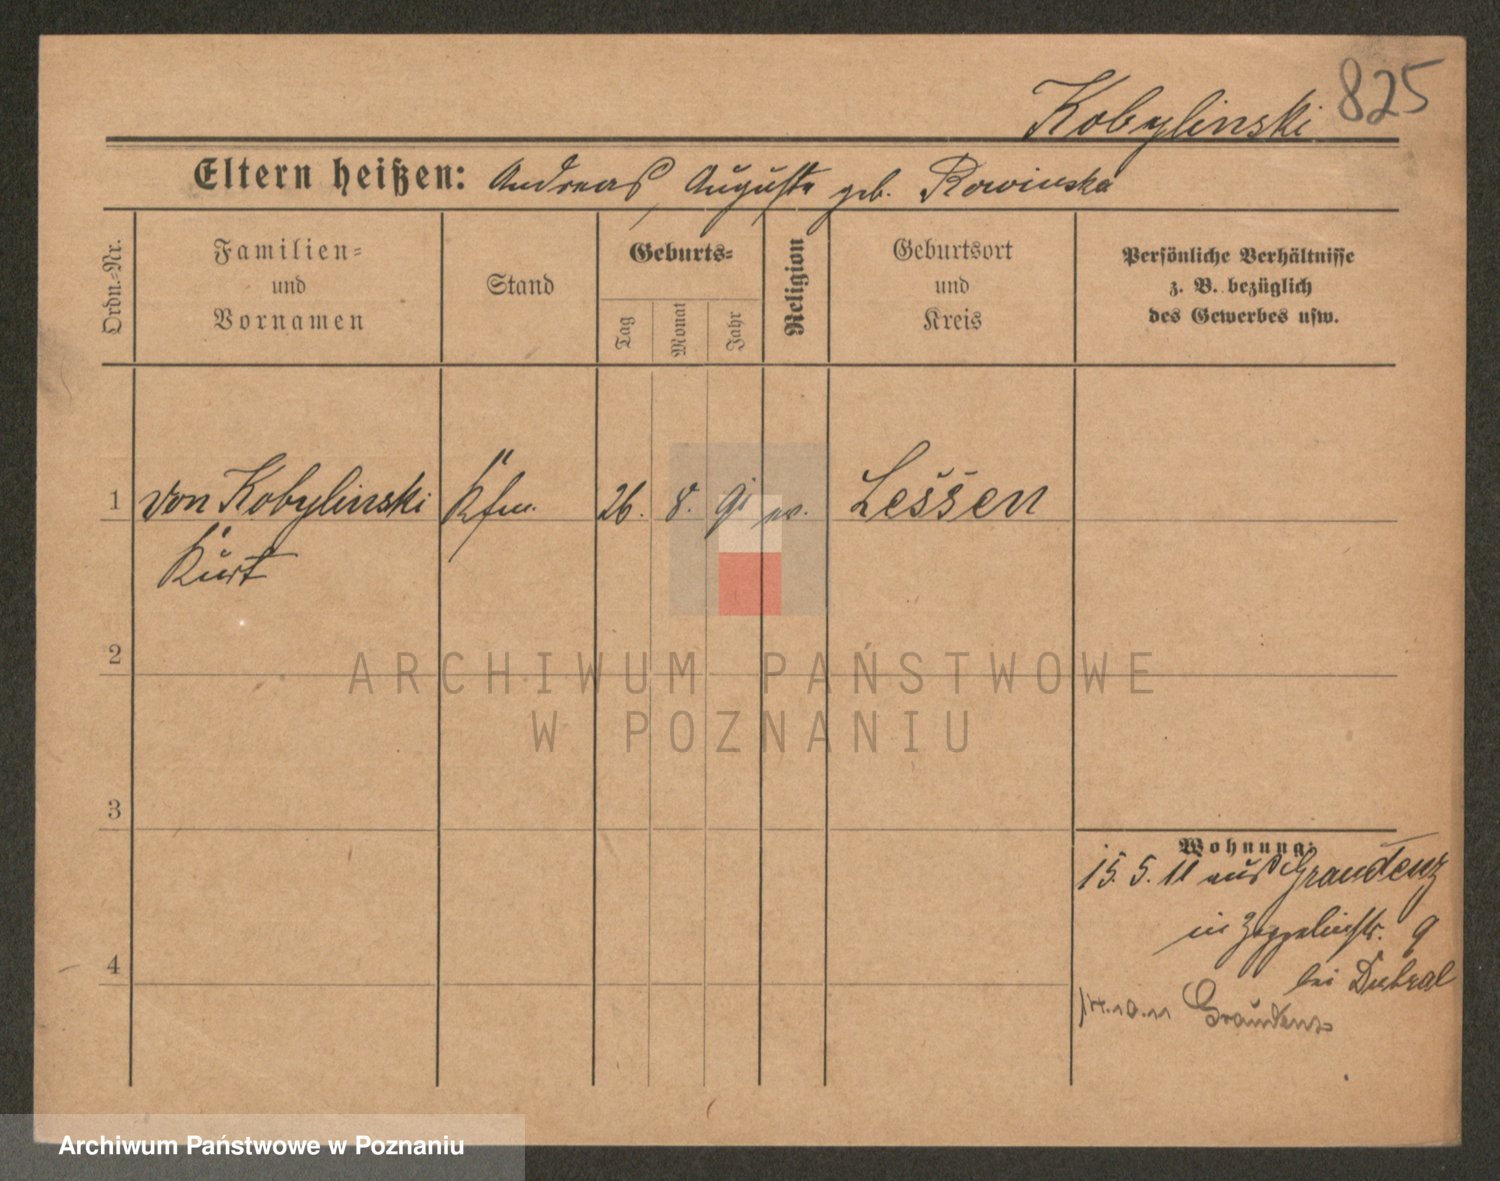 Kobylinski 825
Eltern heißen: Andreas, Auguste geb. Rowinska
Ordn.-Nr.
Familien-
und
Vornamen
Stand
Geburts-
Tag
Monat
Jahr
Religion
Geburtsort
und
Kreis
Persönliche Verhältnisse
z. B. bezüglich
des Gewerbes usw.
1 von Kobylinski Kfm. 26. 8. ev. Lessen
Kurt
2
3
4
Wohnung:
15. 5. 11 aus Graudenz
in Zeppelinstr. 9
bei
Graudenz
ARCHIWUM PAŃSTWOWE
W POZNANIU
Archiwum Państwowe w Poznaniu